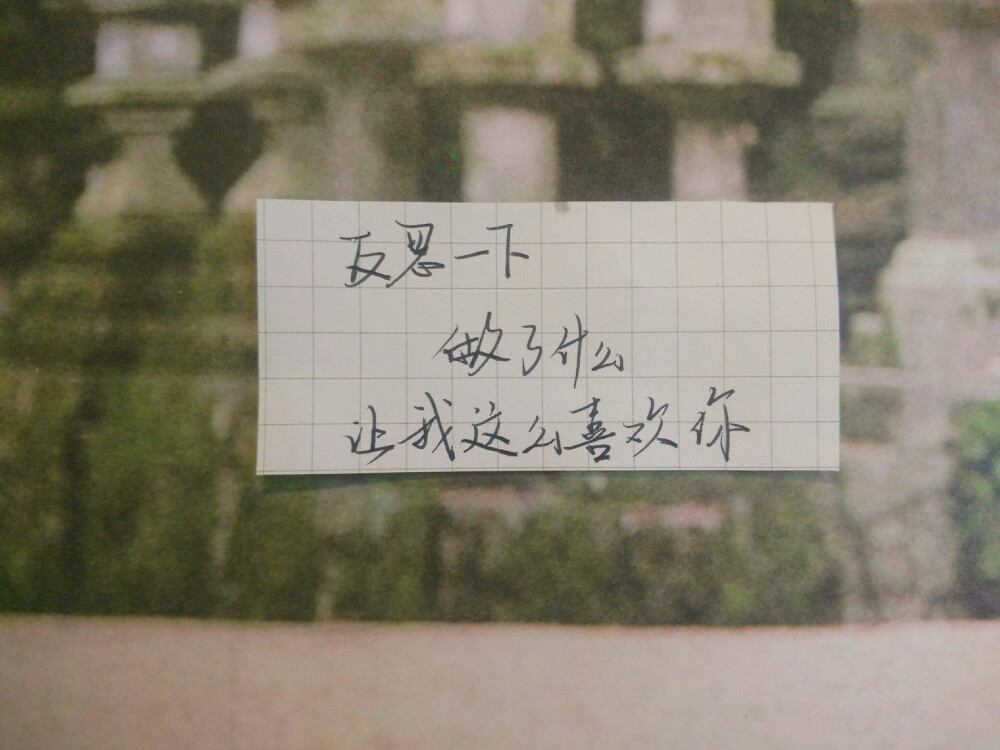 反思一下
做了什么
让我这么喜欢你